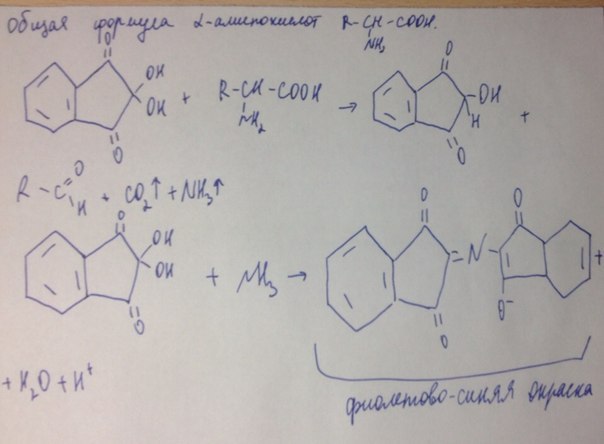 Общая формула α-аминокислот R-CH-COOH.
NH₂
O
OH
OH
O
+ R-CH-COOH →
NH₂
O
OH
H
O
+
R-C
O
H
+ CO₂↑ + NH₃↑
O
OH
OH
O
+ NH₃ →
O
=N-
O
O
O⁻
+
+ H₂O + H⁺
фиолетово-синяя окраска